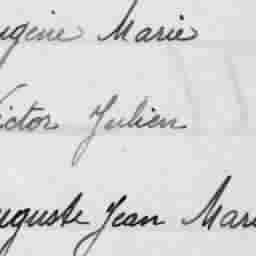 ugène Marie
ictor Julien
uguste Jean Mari